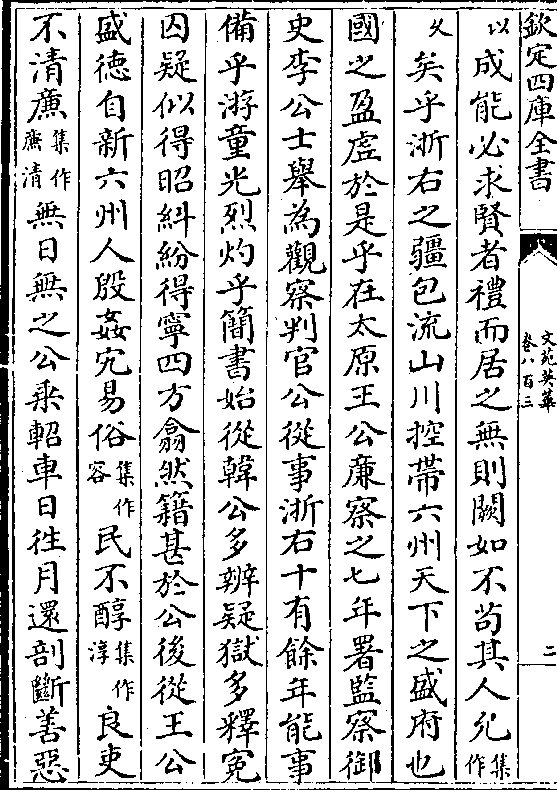 欽定四庫全書
文苑英華
卷八百三
二
以成能必求賢者禮而居之無則闕如不茍其人允集作
久矣乎浙右之疆包流山川控帶六州天下之盛府也
國之盈虛於是乎在太原王公廉察之七年署監察御
史李公士舉為觀察判官公從事浙右十有餘年能事
備乎游童光烈灼乎簡書始從韓公多辨疑獄多釋冤
囚疑似得昭糾紛得寧四方翕然籍甚於公後從王公
盛德自新六州人殷姦宄易俗集作容民不醇集作淳良吏
不清廉集作廉清無日無之公乗軺車日往月還剖斷善惡